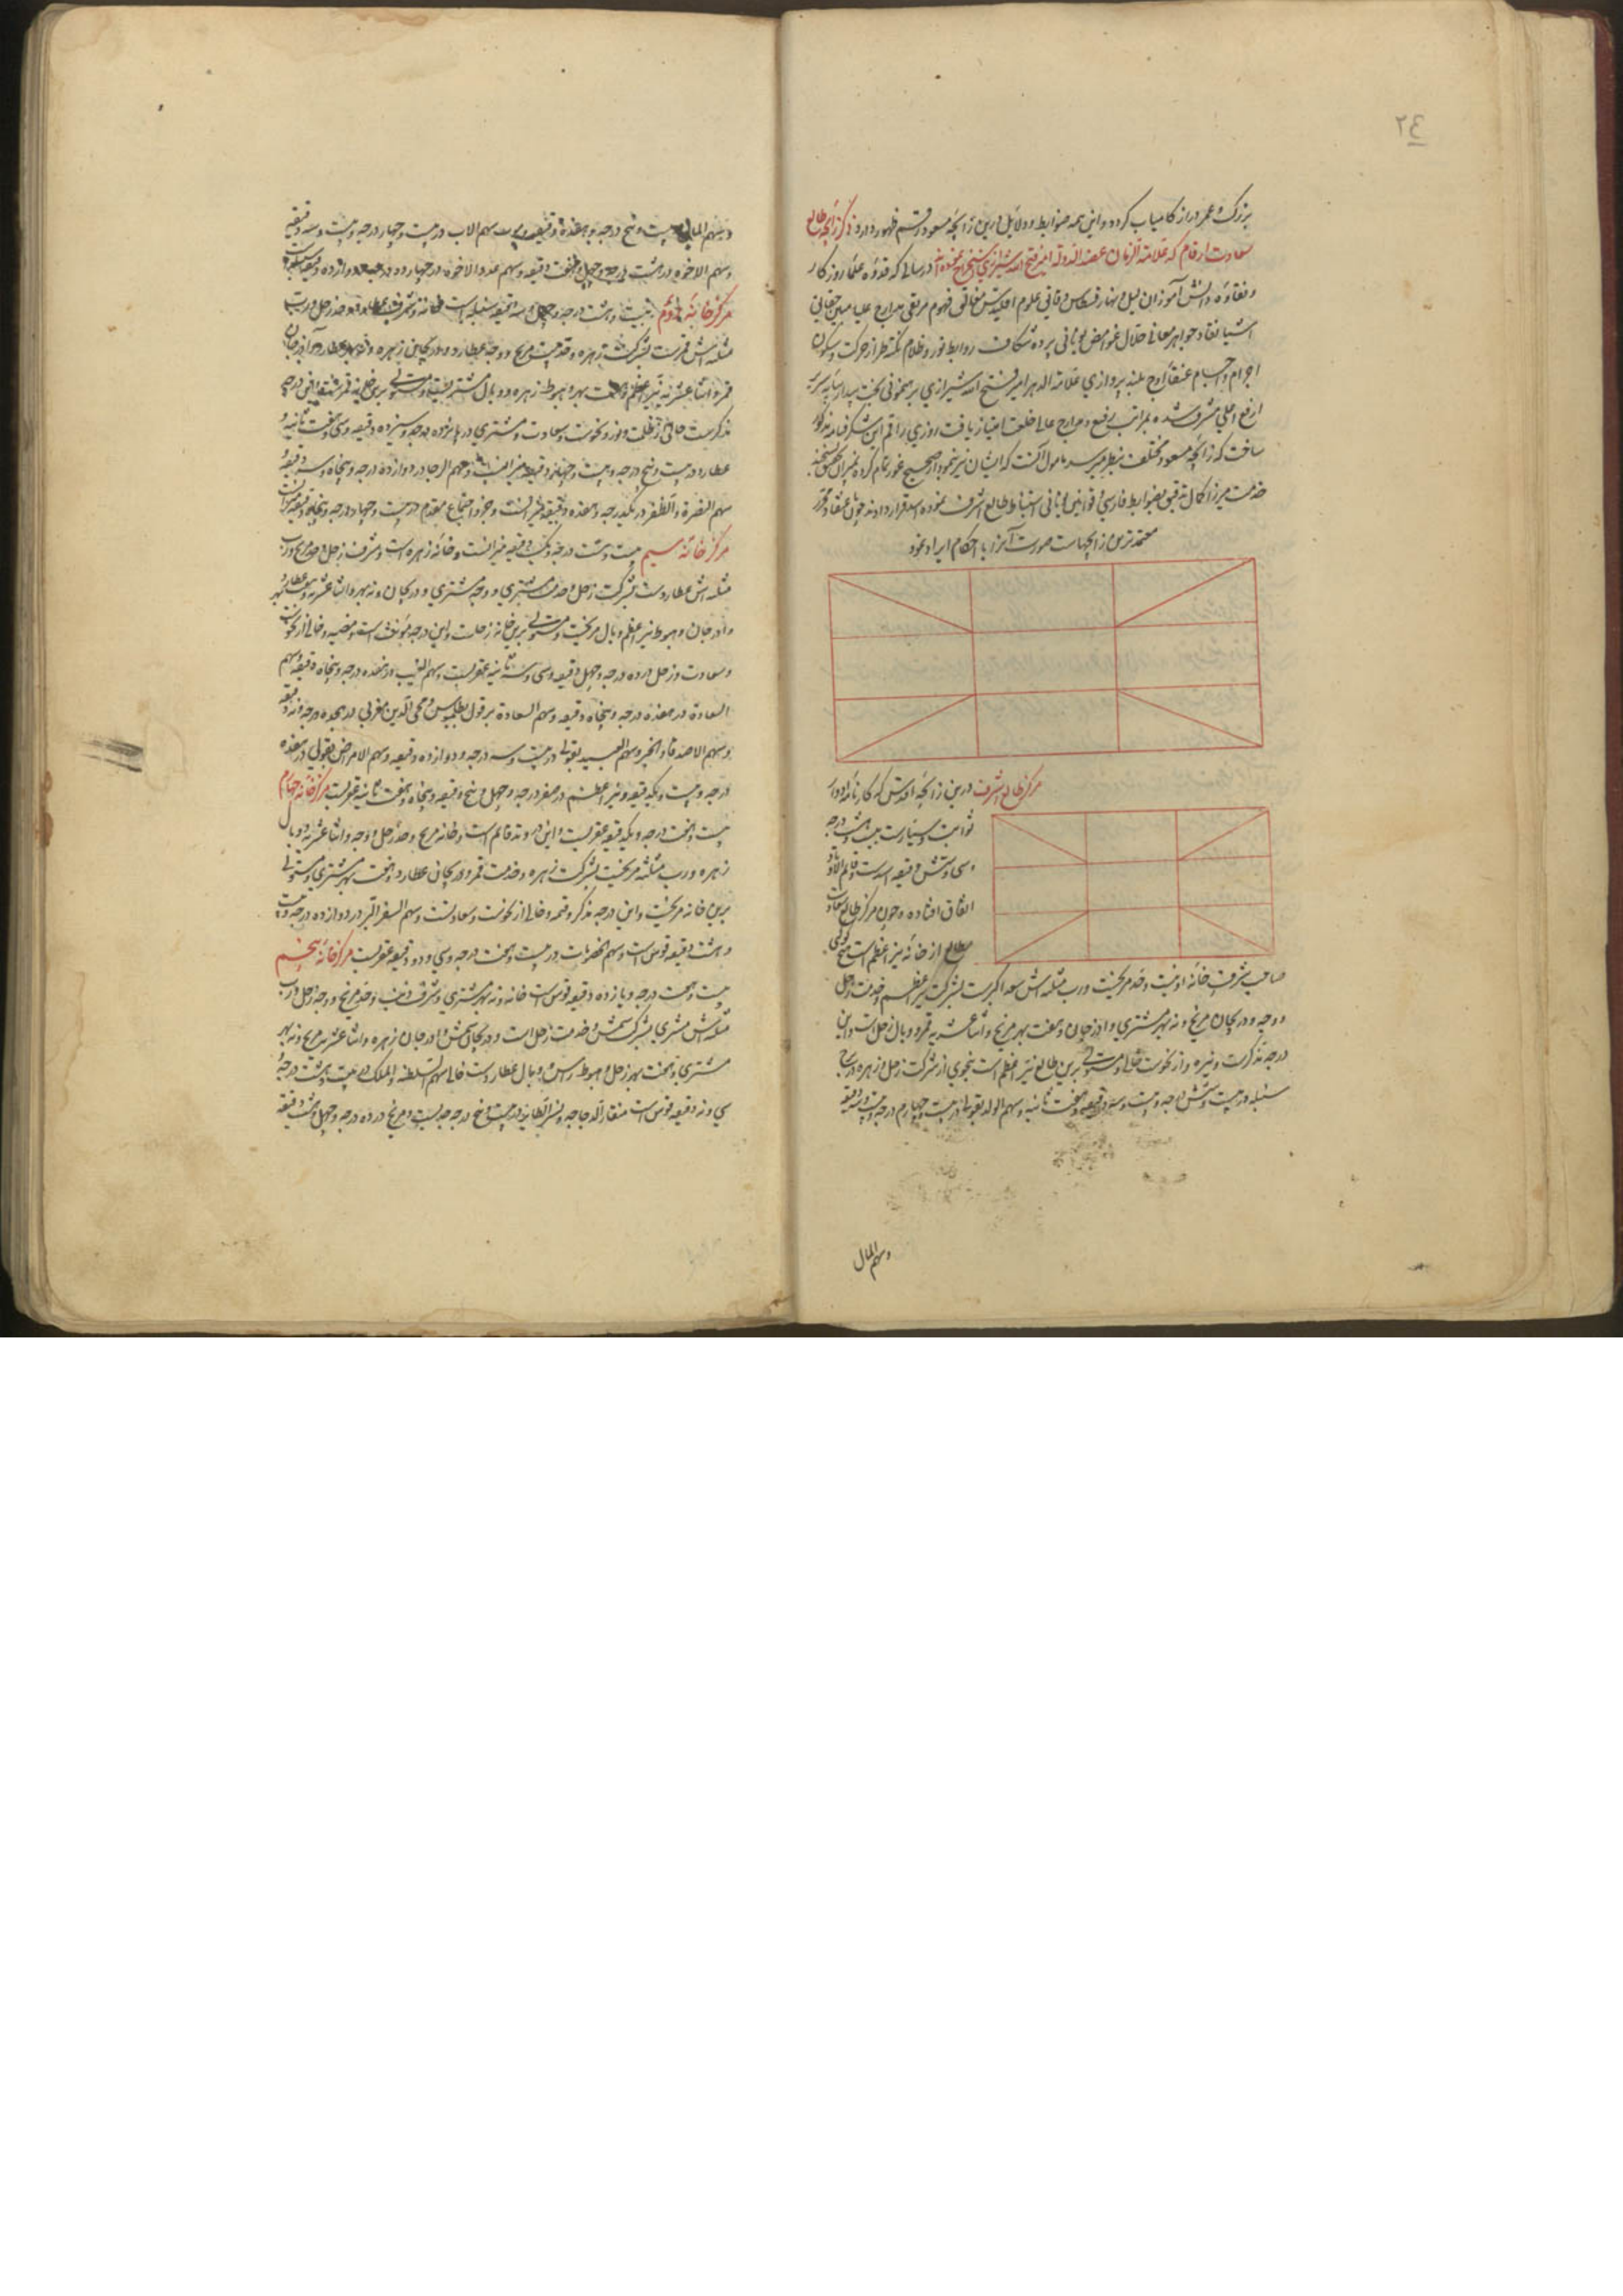 ٢٤
بزرگ و عمر دراز کامیاب گردد و این همه ضوابط و دلایل درین زایچه مسعود رقم ظهور دارد ذکر زایچه طالع
سعادت ارقام که علامة الزمان عضد الدوله امیر فتح الله شیرازی استخراج نموده اند در سالی که قدوه علمای روزگار
و نقاوه دانش آموزان لیل و نهار قسطاس دقایق علوم اقلیدس مغالق فهوم مرتقی مدارج علیا مبین حقایق
اشیا نقاد جواهر معانی حلال غوامض یونانی پرده شکاف روابط نور و ظلام نکته طراز حرکت و سکون
اجرام و اجسام عنقای اوج بلند پروازی علامة الدهر امیر فتح الله شیرازی برهنمونی بخت بیدار بپایه سریر
ارفع اعلی مشرف شده بمراتب رفیع و مدارج عالی خلعت امتیاز یافت روزی راقم این شگرفنامه مذکور
ساخت که زایچه مسعود مختلف بنظر میرسد مامول آنست که ایشان نیز بنمودار صحیح غور تمام کرده بمیزان تحقیق بسنجند
خدمت میرزا کمال تدقیق بضوابط فارسی و قوانین یونانی استنباط طالع اشرف نموده اسد قرار دادند چون باعتقاد محرر
معتمدترین زایچهاست صورت آنرا با احکام ایراد نمود
مرکز طالع اشرف درین زایچه اقدس که کارنامه ادوار
ثوابت و سیارست بیست و هشت درجه
و سی و شش دقیقه اسد است و قایم الاوتاد
اتفاق افتاده و چون مرکز طالع سعادت
مطالع از خانه نیر اعظم است
صاحب شرف خانه اوست و حد مریخست و رب مثلثه اش سعد اکبرست بشرکت نیر اعظم و خدمت زحل
و وجه و دریجان مریخ و نه بهر مشتری و ادرجان و هفت بهر مریخ و اثنا عشریه قمر و وبال زحل است و این
درجه مذکرست و نیره و از نحوست خالی و مستولی برین طالع نیر اعظم است بنحوی از شرکت زحل و زهره در
سنبله در بیست و شش درجه و بیست و سه دقیقه و هفت ثانیه و سهم الولد بقولی در بیست و چهارم درجه و بیست و سه دقیقه
و سهم المال
و سهم المال در بیست و پنج درجه و هفده دقیقه و سهم الاب در بیست و چهار درجه و بیست و سه دقیقه
و سهم الاخوه در هشت درجه و چهل و هفت دقیقه و سهم عدد الاخوه در چهارده درجه و دوازده دقیقه
مرکز خانه دوم بیست و هشت درجه و چهل و سه دقیقه سنبله است خانه و شرف عطارد و حد زحل و رب
مثلثه اش قمرست بشرکت زهره و خدمت مریخ و وجه عطارد و دریجان زهره و نه بهر عطارد و آدرجان
قمر و اثنا عشریه نیر اعظم و هفت بهر و هبوط زهره و وبال مشتریست و مستولی برین خانه قمر
مذکرست خالی از ظلمت و نور و نحوست و سعادت و مشتری در پانزده درجه و سیزده دقیقه و سی و هفت ثانیه و
عطارد در بیست و پنج درجه و بیست و چهار دقیقه میزانست و سهم الرجا در دوازده درجه و پنجاه و سه دقیقه و
سهم النصرة و الظفر در یکدرجه و هفده دقیقه میزانست و جزو اجتماع مقدم در بیست و چهار درجه و پنجاه دقیقه میزانست
مرکز خانه سیم بیست و هشت درجه و یک دقیقه میزانست و خانه زهره است و شرف زحل و حد مریخ و رب
مثلثه اش عطاردست بشرکت زحل و خدمت مشتری و وجه مشتری و دریجان و نه بهر و اثنا عشریه و هفت بهر عطارد
و ادرجان و هبوط نیر اعظم و وبال مریخست و مستولی برین خانه زحلست و این درجه مونث است و مضیه و خالی از نحوست
و سعادت و زحل در ده درجه و چهل دقیقه و سی و سه ثانیه عقربست و سهم الغیب در هفده درجه و پنجاه دقیقه و سهم
السعادة در هفده درجه و پنجاه دقیقه و سهم السعادة بر قول بطلمیوس و محی الدین مغربی در هجده درجه و نه دقیقه
و سهم الاصدقا و الخیر و سهم العبید بقولی در بیست و سه درجه و دوازده دقیقه و سهم الامراض بقولی در هفده
درجه و بیست و یک دقیقه و نیر اعظم در صفر درجه و چهل و پنج دقیقه و پنجاه و هفت ثانیه عقربست مرکز خانه چهارم
بیست و هفت درجه و یک دقیقه عقربست و این وتد قایم است و خانه مریخ و حد زحل و وجه و اثنا عشریه و وبال
زهره و رب مثلثه مریخست بشرکت زهره و خدمت قمر و دریجان عطارد و هفت بهر مشتری و مستولی
برین خانه مریخست و این درجه مذکر و قتمه و خالی از نحوست و سعادتست و سهم السفر البر در دوازده درجه و بیست
و هشت دقیقه قوس است و سهم الخصومات در بیست و هفت درجه و سی و دو دقیقه عقربست مرکز خانه پنجم
بیست و هفت درجه و یازده دقیقه قوس است خانه و نه بهر مشتری و شرف ذنب و حد مریخ و وجه زحل و رب
مثلثه اش مشتری بشرکت شمس و خدمت زحل است و دریجان شمس و ادرجان زهره و اثنا عشریه مریخ و نه بهر
مشتری و هفت بهر زحل و هبوط راس و وبال عطاردست خالی سهم السلطنه و الملک در بیست و هشت درجه و
سی و نه دقیقه قوس است منقار الدجاجه و نسر الطایر در بیست و پنج درجه جدیست و مریخ در ده درجه و چهل و هشت دقیقه